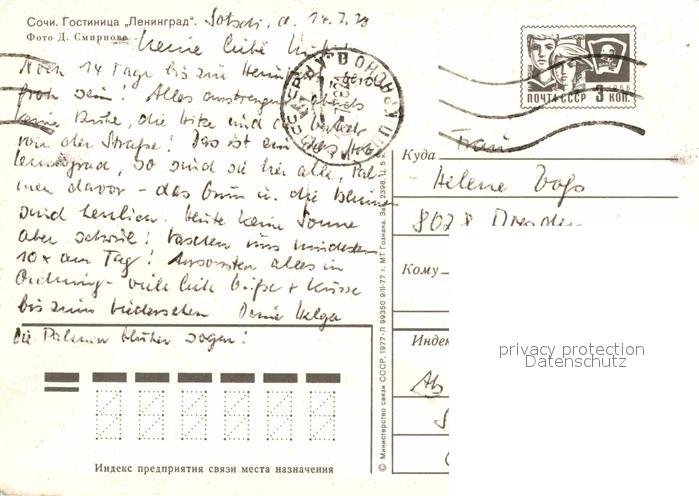 Сочи. Гостиница „Ленинград“.
Фото Д. Смирнова
Sotschi, d. 14.7.78
Meine liebe
Noch 14 Tage bis zur
froh sein! Alles anstrengend, abends
keine Ruhe, die Hitze und der
von der Straße! Das ist ein
Leningrad, so sind sie hier alle, Pal-
men davor – das Grün u. die Blumen
sind herrlich. Heute keine Sonne
aber schwül! Waschen uns mindestens
10x am Tag! Ansonsten alles in
Ordnung – viele liebe Grüße + Küsse
bis zum Wiedersehen Deine Helga
Die Palmen blühen sogar!
ПОЧТА СССР 3 КОП.
1966
Куда
Frau
Helene Voß
8028 Dresden
Кому
Индек
Ab
8
privacy protection
Datenschutz
Индекс предприятия связи места назначения
© Министерство связи СССР, 1977. Л 99350 9/II-77 г. МТ Гознака. Зак. 2398. Ц. 5 к.